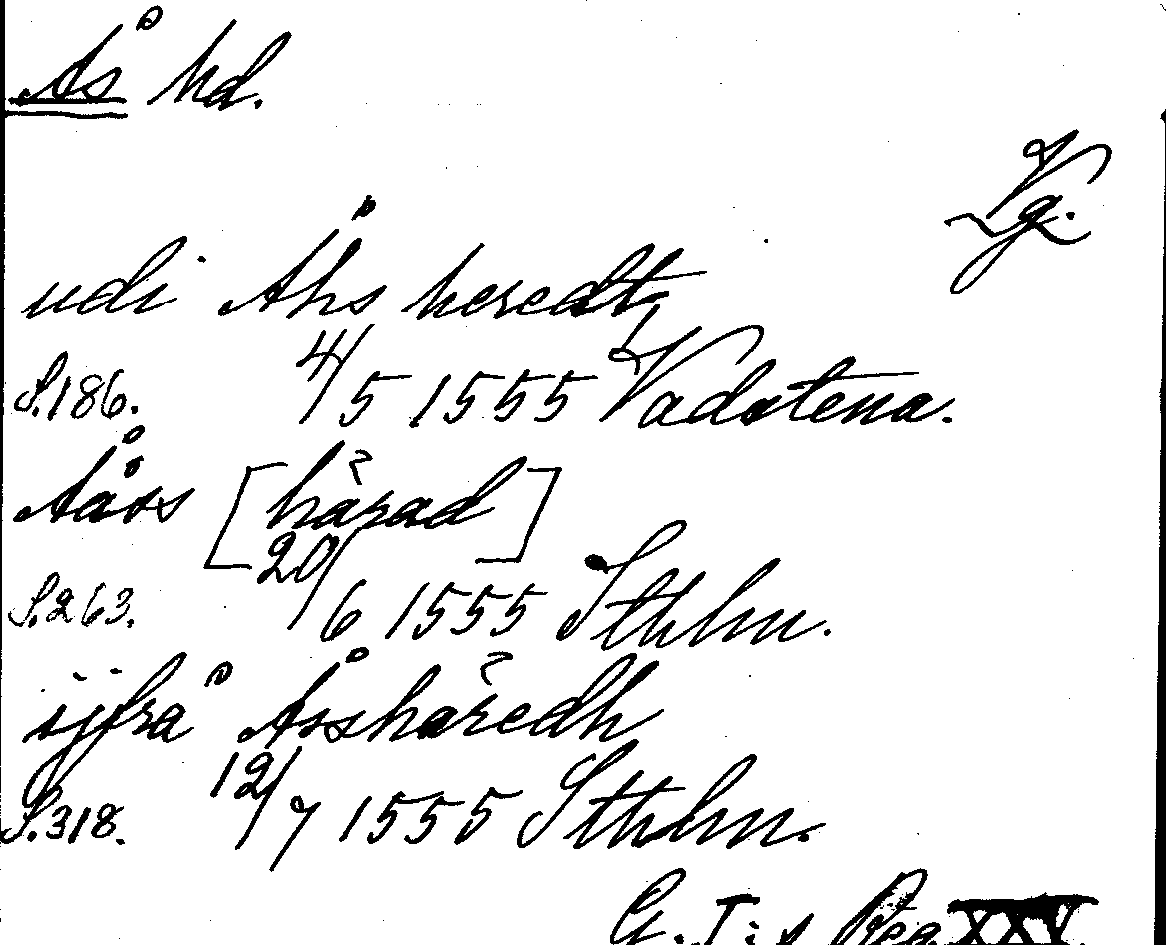 Ås hd.
Vg.
udi Åhs heredt,
S. 186. 4/5 1555 Vadstena.
Aåss [härad]
S. 263. 20/6 1555 Sthlm.
ijfrå Åsshäredh
S. 318. 12/7 1555 Sthlm.
G. I:s Reg. XXV